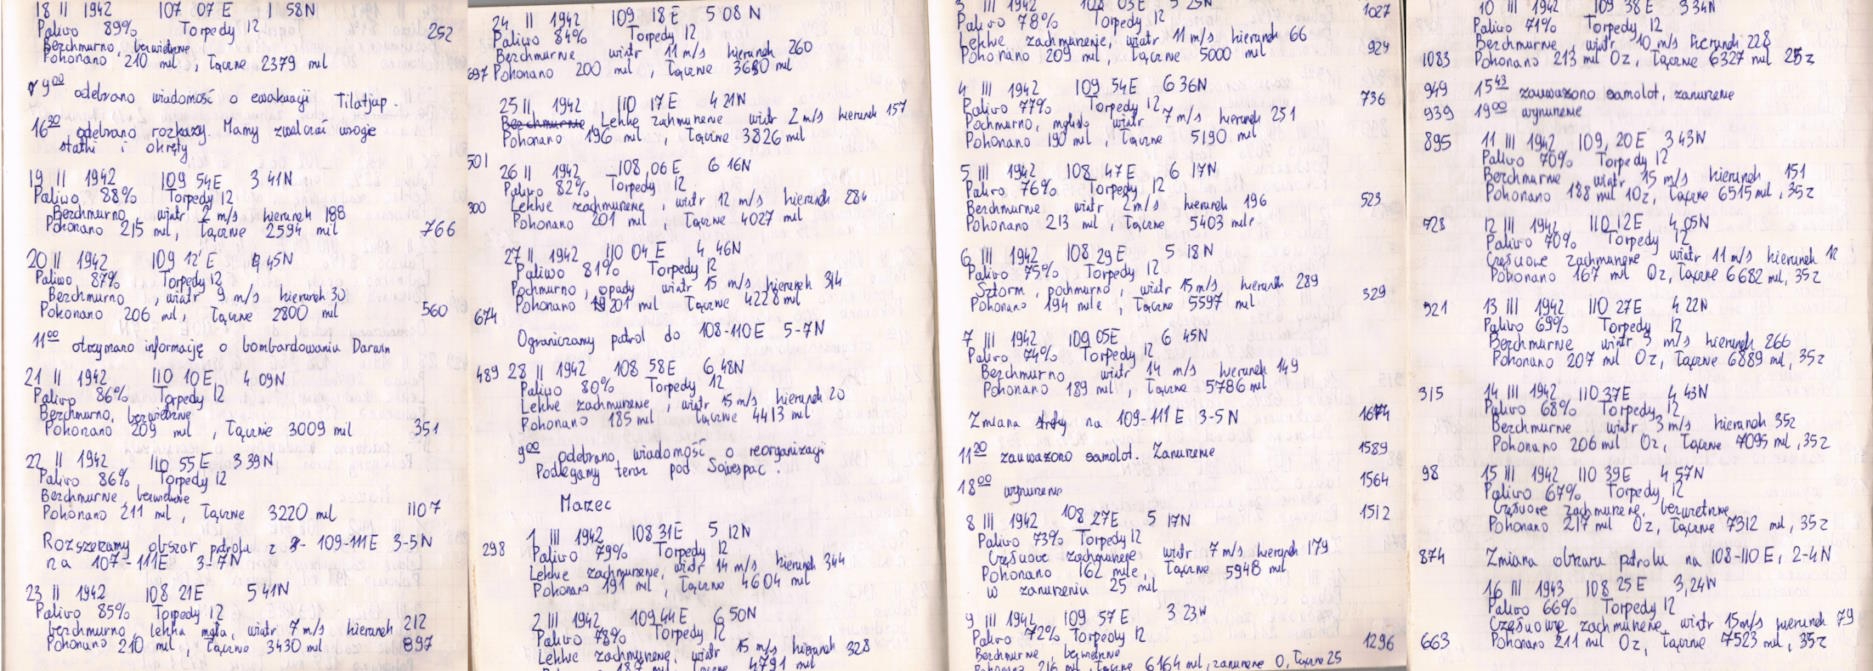 18 II 1942 107 07 E 1 58N
Paliwo 89% Torpedy 12
252
Bezchmurno, bezwietrzne
Pokonano 210 mil, Łącznie 2379 mil
9:00 odebrano wiadomość o ewakuacji Tjilatjap.
16:00 odebrano rozkazy. Mamy zwalczać wrogie
statki i okręty
19 II 1942 109 54E 3 41N
Paliwo 88% Torpedy 12
Bezchmurno, wiatr 2 m/s kierunek 188
Pokonano 215 mil, Łącznie 2594 mil
766
20 II 1942 109 12' E 4 45N
Paliwo 87% Torpedy 12
Bezchmurno, wiatr 9 m/s kierunek 30
Pokonano 206 mil, Łącznie 2800 mil
560
11:00 otrzymano informację o bombardowaniu Darwin
21 II 1942 110 10E, 4 09N
Paliwo 86% Torpedy 12
Bezchmurno, bezwietrzne
Pokonano 209 mil, Łącznie 3009 mil
351
22 II 1942 110 55 E 3 39N
Paliwo 86%, Torpedy 12
Bezchmurne, bezwietrzne
Pokonano 211 mil, Łącznie 3220 mil
1107
Rozszerzamy obszar patrolu z 109-111E 3-5N
na 107-111E 3-7N
23 II 1942 108 21E 5 41N
Paliwo 85% Torpedy 12
bezchmurno, lekka mgła, wiatr 7 m/s kierunek 212
Pokonano 210 mil, Łącznie 3430 mil
897
24 II 1942 109 18E 5 08N
Paliwo 84% Torpedy 12
Bezchmurne wiatr 11 m/s kierunek 260
697 Pokonano 200 mil, Łącznie 3630 mil
25 II 1942 110 17E 4 21N
Bezchmurnie Lekkie zachmurzenie wiatr 2 m/s kierunek 157
Pokonano 196 mil, Łącznie 3826 mil
501
26 II 1942 108,06 E 6 16N
Paliwo 82% Torpedy 12
Lekkie zachmurzenie, wiatr 12 m/s kierunek 284
300
Pokonano 201 mil, Łącznie 4027 mil
27 II 1942 110 04 E 4 46N
Paliwo 81% Torpedy 12
Pochmurno, opady wiatr 15 m/s, kierunek 314
Pokonano 201 mil Łącznie 4228 mil
674
Ograniczamy patrol do 108-110E 5-7N
489 28 II 1942 108 58E 6,48N
Paliwo 80% Torpedy 12
Lekkie zachmurzenie, wiatr 15 m/s kierunek 20
Pokonano 185 mil, Łącznie 4413 mil
9:00 odebrano, wiadomość o reorganizacji
Podlegamy teraz pod Sowespac.
Marzec
1 III 1942 108 31E 5 12N
298
Paliwo 79% Torpedy 12
Lekkie zachmurzenie, wiatr 14 m/s kierunek 344
Pokonano 191 mil, Łącznie 4604 mil
2 III 1942 109 44 E 6 50N
Paliwo 78% Torpedy 12
Lekkie zachmurzenie, wiatr 15 m/s kierunek 328
187 mil Łącznie 4791 mil
3 III 1942 108 03E 5 25N
1027
Paliwo 78% Torpedy 12
Lekkie zachmurzenie, wiatr 11 m/s kierunek 66
Pokonano 209 mil, Łącznie 5000 mil
924
4 III 1942 109 54E 6 36N
Paliwo 77% Torpedy 12
736
Pochmurno, mgliste wiatr 7 m/s kierunek 251
Pokonano 190 mil, Łącznie 5190 mil
5 III 1942 108 47E 6 17N
Paliwo 76% Torpedy 12
Bezchmurnie wiatr 2m/s kierunek 196
523
Pokonano 213 mil, Łącznie 5403 mil
6 III 1942 108 29 E 5 18N
Paliwo 75% Torpedy 12
Sztorm, pochmurno, wiatr 15m/s kierunek 289
Pokonano 194 mile, Łącznie 5597 mil
329
7 III 1942 109 05E 6 45N
Paliwo 74% Torpedy 12
Bezchmurno, wiatr 14 m/s kierunek 149
Pokonano 189 mil, Łącznie 5786 mil
Zmiana strefy na 109-111 E 3-5N
1674
11:20 zauważono samolot. Zanurzenie
1589
18:00 wynurzenie
1564
8 III 1942 108 27E 5 17N
1512
Paliwo 73% Torpedy 12
Częściowe zachmurzenie, wiatr 7 m/s kierunek 179
Pokonano 162 mile, Łącznie 5948 mil
w zanurzeniu 25 mil
9 III 1942 109 57 E 3 23N
Paliwo 72% Torpedy 12
Bezchmurnie, bezwietrznie
1296
Pokonano 216 mil, Łącznie 6164 mil, zanurzone 0, Łącznie 25
10 III 1942 109 38 E 3 34N
Paliwo 71% Torpedy 12
Bezchmurne, wiatr 10 m/s kierunek 228
1083 Pokonano 213 mil 0z, Łącznie 6327 mil 25z
949 15:43 zauważono samolot, zanurzenie
939 19:00 wynurzenie
895 11 III 1942 109, 20E 3 43N
Paliwo 70% Torpedy 12
Bezchmurne wiatr 15 m/s kierunek, 151
Pokonano 188 mil 10z, Łącznie 6515 mil, 35z
728 12 III 1942 110 12E 4 05N
Paliwo 70% Torpedy 12
Częściowe zachmurzenie wiatr 11 m/s kierunek 12
Pokonano 167 mil 0z, Łącznie 6682 mil, 35z
521 13 III 1942 110 27E 4 22N
Paliwo 69% Torpedy 12
Bezchmurnie wiatr 3 m/s kierunek 266
Pokonano 207 mil 0z, Łącznie 6889 mil, 35z
315 14 III 1942 110 37E 4 43N
Paliwo 68% Torpedy 12
Bezchmurne wiatr 3 m/s kierunek 352
Pokonano 206 mil 0z, Łącznie 7095 mil, 35z
98 15 III 1942 110 39E 4 57N
Paliwo 67% Torpedy 12
Częściowe zachmurzenie, bezwietrzne
Pokonano 217 mil 0z, Łącznie 7312 mil, 35z
874 Zmiana obszaru patrolu na 108-110 E, 2-4N
16 III 1943 108 25E 3,24N
Paliwo 66% Torpedy 12
Częściowe zachmurzenie, wiatr 15m/s kierunek 79
663 Pokonano 211 mil 0z, Łącznie 7523 mil, 35z